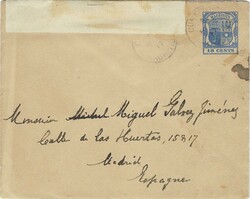 18 CENTS
Monsieur Michel Miguel Galvez Jiménez
Calle de las Huertas, 15 & 17
Madrid
Espagne